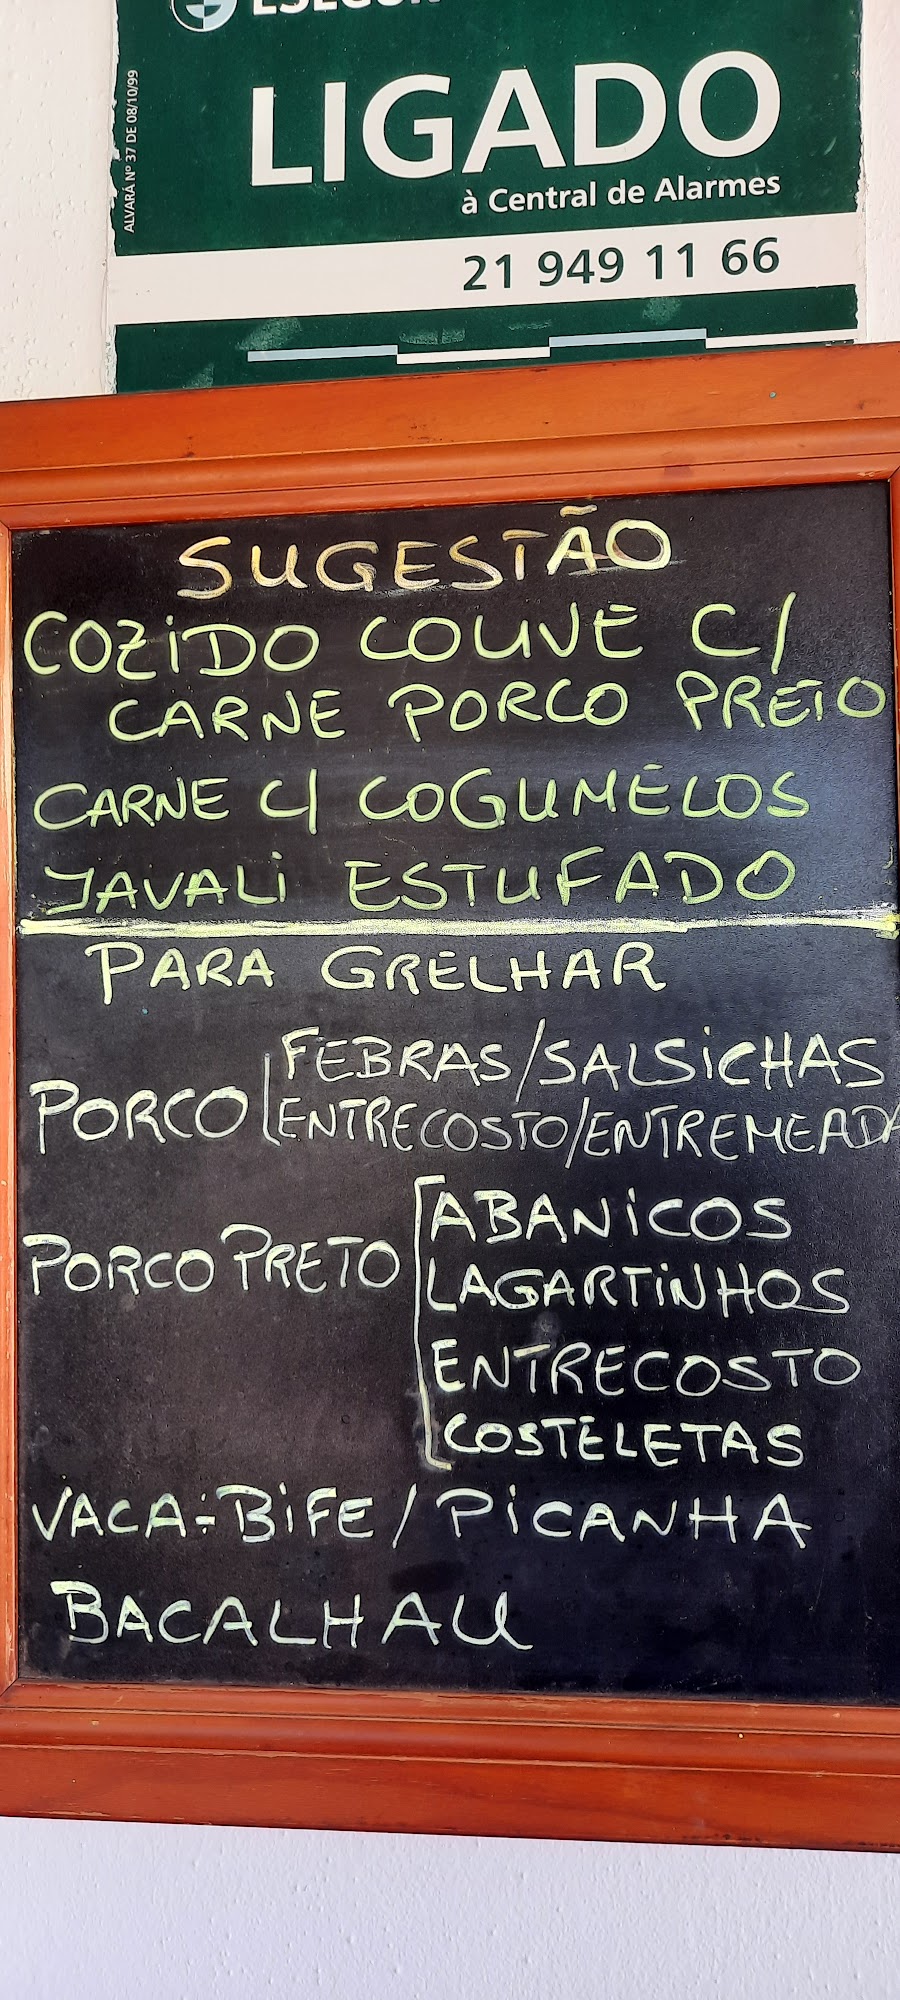 LIGADO
à Central de Alarmes
21 949 11 66
ALVARÁ Nº 37 DE 08/10/99
SUGESTÃO
COZIDO COUVE C/
CARNE PORCO PRETO
CARNE C/ COGUMELOS
JAVALI ESTUFADO
PARA GRELHAR
PORCO
FEBRAS/SALSICHAS
ENTRECOSTO/ENTREMEADA
PORCO PRETO
ABANICOS
LAGARTINHOS
ENTRECOSTO
COSTELETAS
VACA÷BIFE/PICANHA
BACALHAU